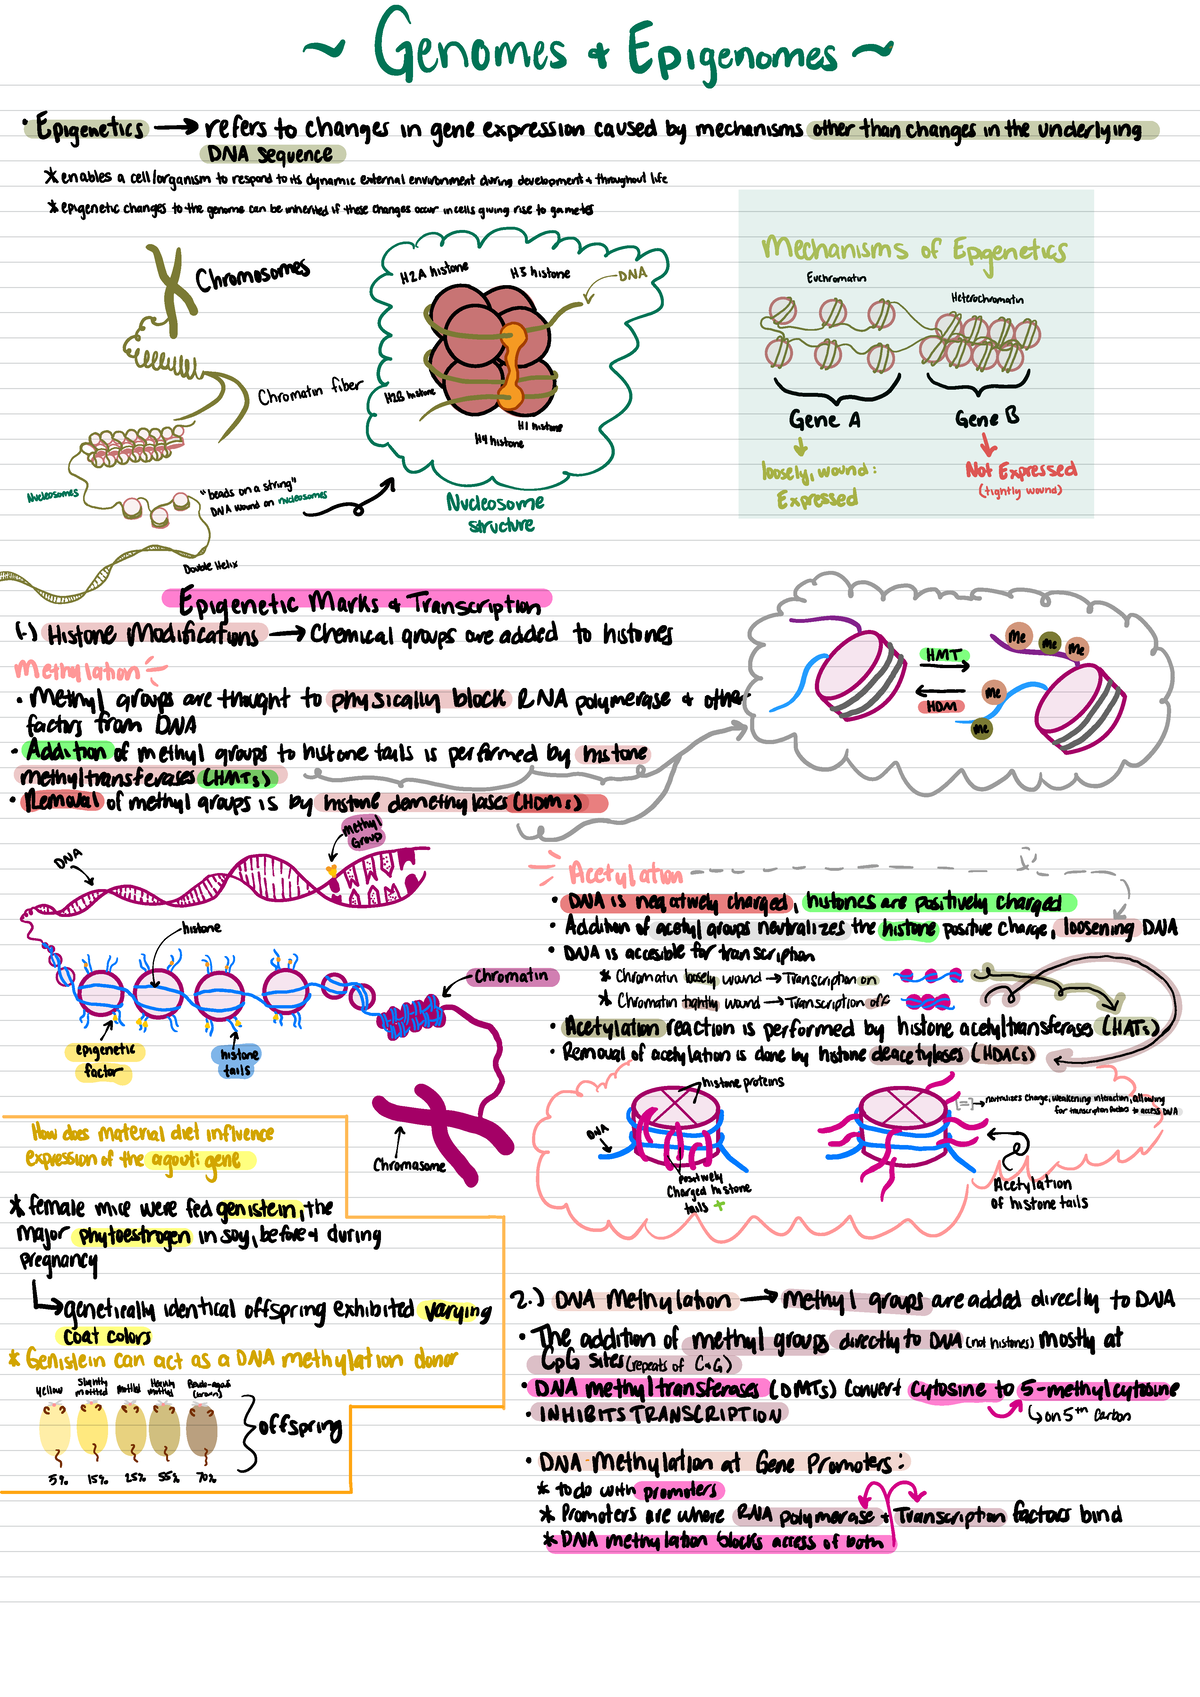 ~ Genomes & Epigenomes ~
• Epigenetics → refers to changes in gene expression caused by mechanisms other than changes in the underlying
DNA sequence
* enables a cell/organism to respond to its dynamic external environment during development & throughout life
* epigenetic changes to the genome can be inherited if these changes occur in cells giving rise to gametes
Chromosomes
Chromatin fiber
Nucleosomes
"beads on a string"
DNA wound on nucleosomes
Double Helix
H2A histone
H3 histone
DNA
H2B histone
H1 histone
H4 histone
Nucleosome
structure
Mechanisms of Epgenetics
Euchromatin
Heterochromatin
Gene A
Gene B
loosely, wound:
Expressed
Not Expressed
(tightly wound)
Epigenetic Marks & Transcription
1.) Histone Modifications → Chemical groups are added to histones
Methylation
• Methyl groups are thought to physically block RNA polymerase & other
factors from DNA
• Addition of methyl groups to histone tails is performed by histone
methyltransferases (HMTs)
• Removal of methyl groups is by histone demethylases (HDMs)
HMT
HDM
Me
Me
Me
Me
Me
DNA
methyl
Group
histone
Chromatin
epigenetic
factor
histone
tails
Chromasome
Acetylation
• DNA is negatively charged, histones are positively charged
• Addition of acetyl groups neutralizes the histone positive charge, loosening DNA
• DNA is accesible for transcription
* Chromatin loosely wound → Transcription on
* Chromatin tightly wound → Transcription off
• Acetylation reaction is performed by histone acetyltransferases (HATs)
• Removal of acetylation is done by histone deacetylases (HDACs)
histone proteins
DNA
positively
Charged histone
tails +
→ neutralizes charge, weakening interaction, allowing
for transcription factors to access DNA
Acetylation
of histone tails
How does material diet influence
expression of the agouti gene
* female mice were fed genistein, the
major phytoestrogen in soy, before & during
pregnancy
↳ genetically identical offspring exhibited varying
coat colors
* Genistein can act as a DNA methylation donor
yellow
Slightly
mottled
mottled
Heavily
mottled
Pseudo-agouti
(brown)
offspring
5% 15% 25% 55% 70%
2.) DNA Methylation → methyl groups are added directly to DNA
• The addition of methyl groups directly to DNA (not histones) mostly at
CpG sites (repeats of C & G)
• DNA methyltransferases (DMTs) convert cytosine to 5-methylcytosine
↳ on 5th carbon
• INHIBITS TRANSCRIPTION
• DNA Methylation at Gene Promoters:
* to do with promoters
* Promoters are where RNA polymerase & Transcription factors bind
* DNA methylation blocks access of both